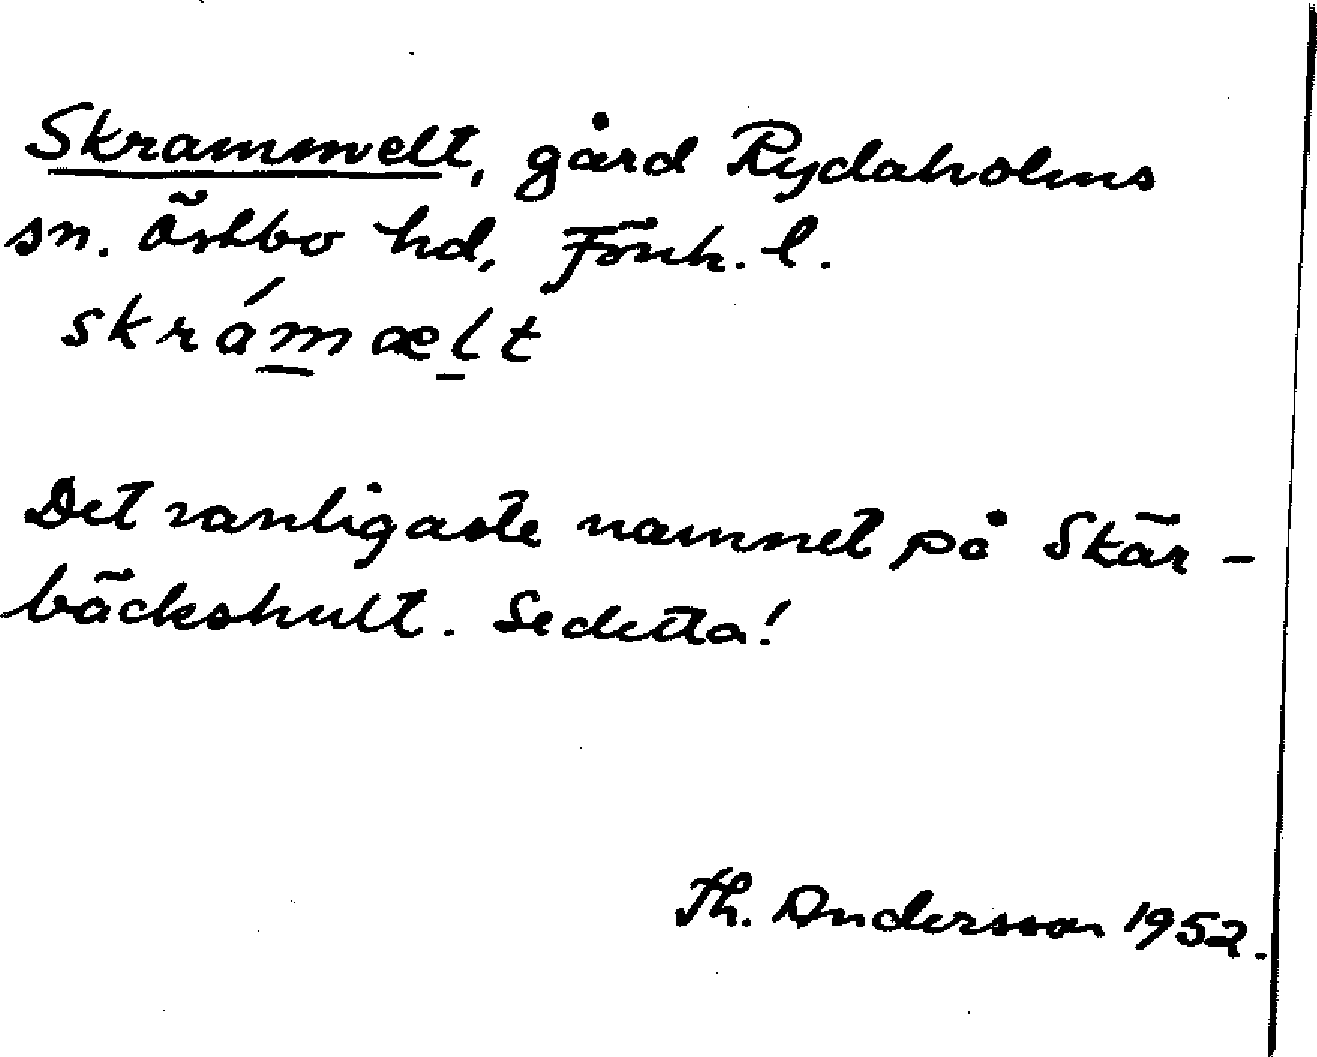 Skrammelt, gård Rydaholms
sn. Östbo hd, Jönk. l.
skrámælt
Det vanligaste namnet på Skär-
bäckshult. Se detta!
Th. Andersson 1952.